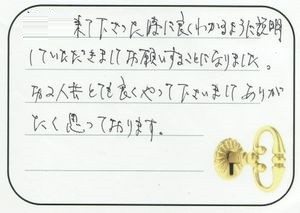 来て下さった際に良くわかるように説明
していただきましてお願いすることになりました。
お2人共とても良くやって下さいましてありが
たく思っております。